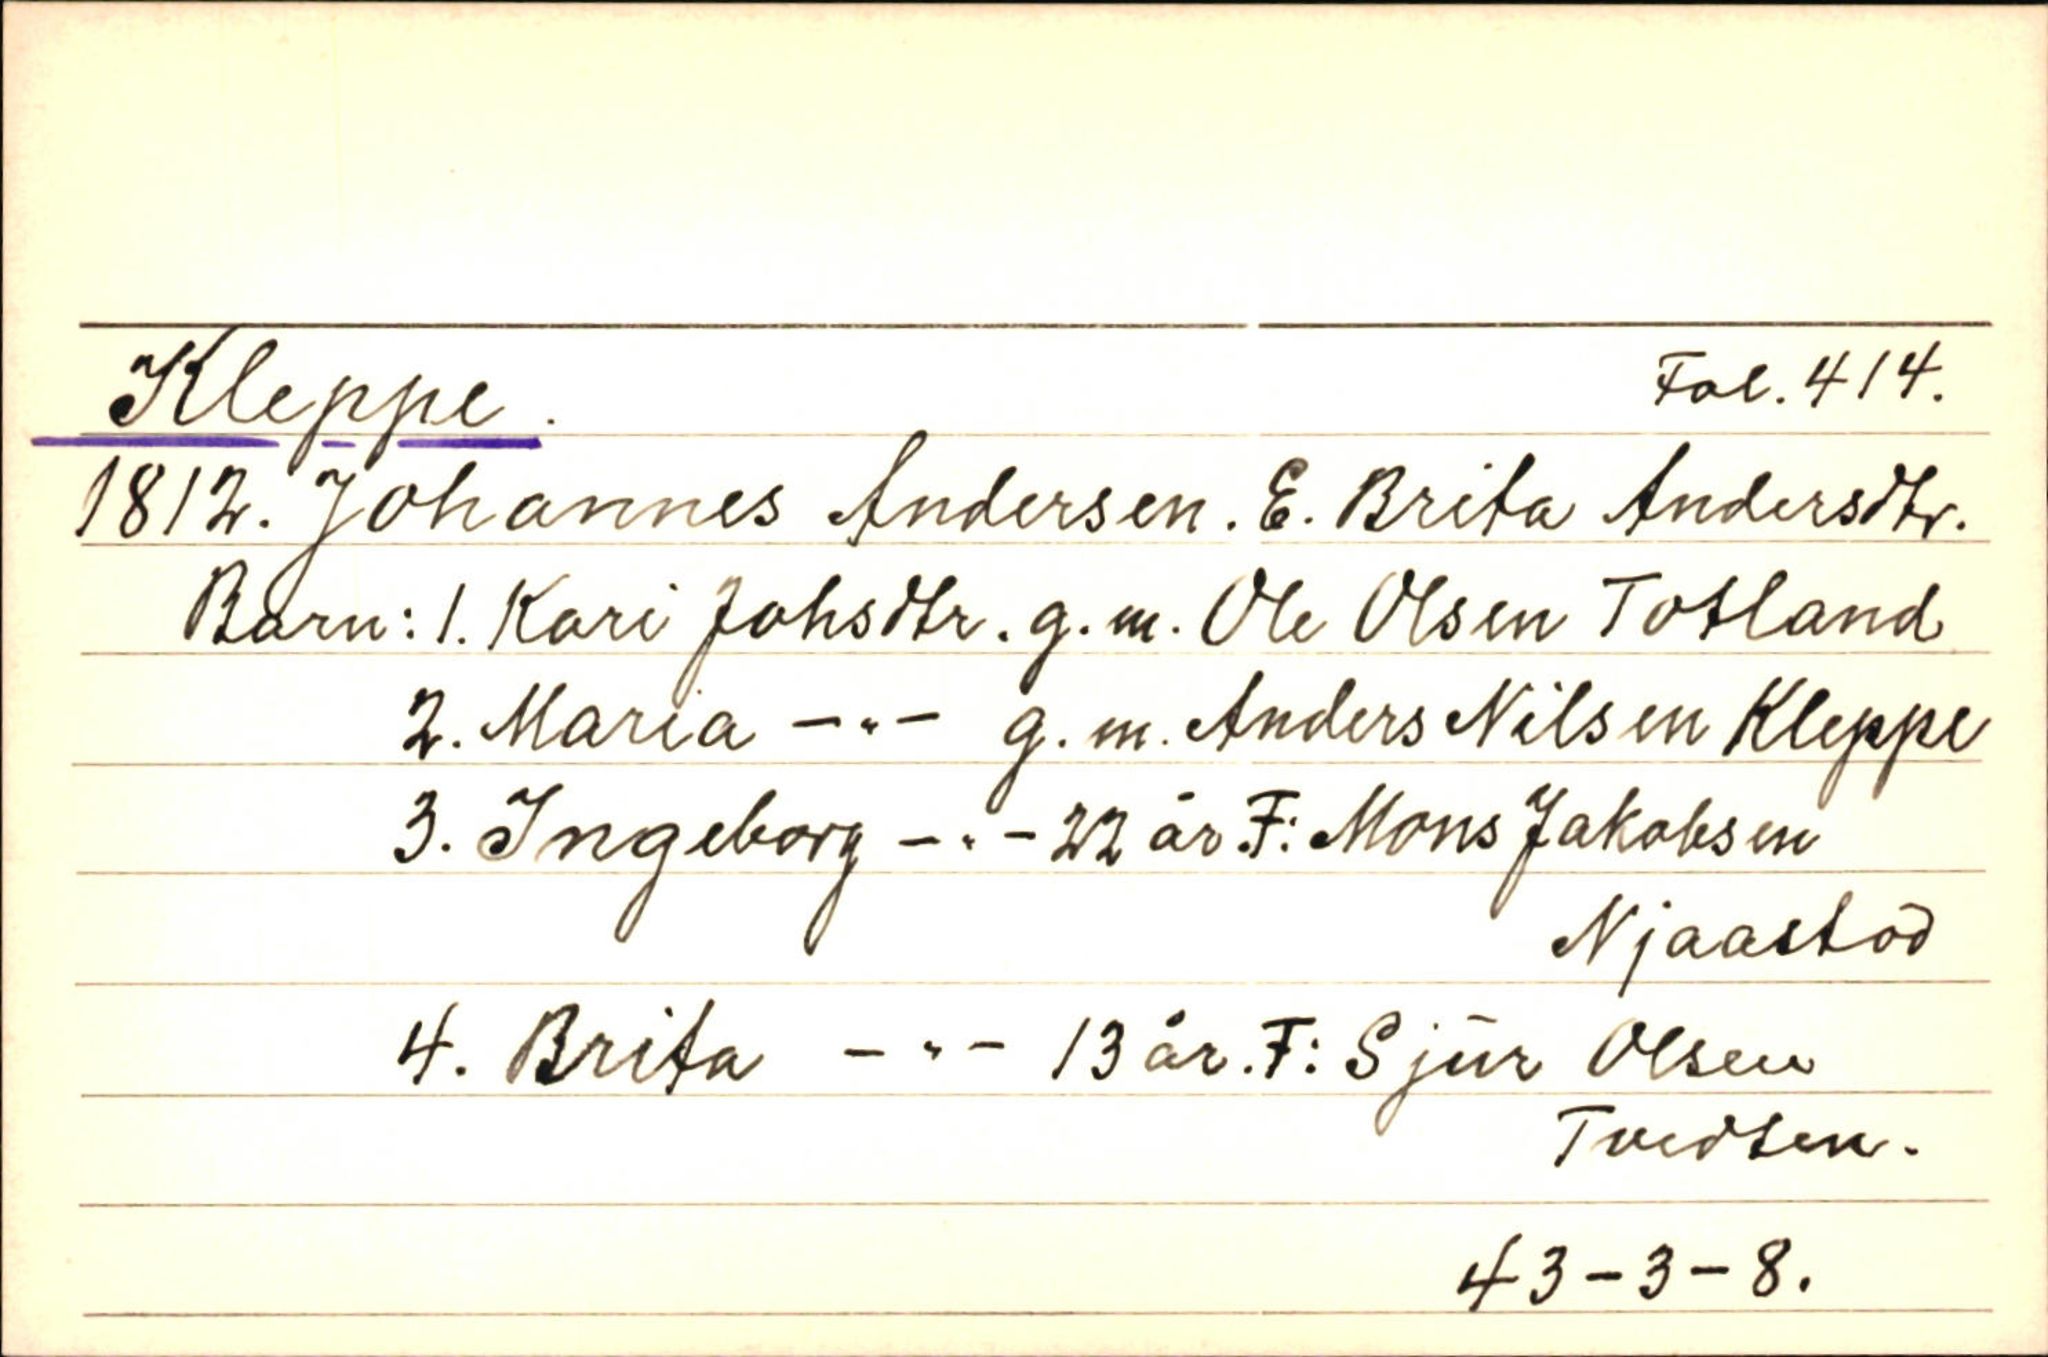 Kleppe. Fol. 414.
1812. Johannes Andersen. E. Brita Andersdtr.
Barn: 1. Kari Johsdtr. g. m. Ole Olsen Totland
2. Maria -"- g. m. Anders Nilsen Kleppe
3. Ingeborg -"- 22 år. F: Mons Jakobsen
Njaastöd
4. Brita -"- 13 år. F: Sjūr Olsen
Tvedten.
43-3-8.